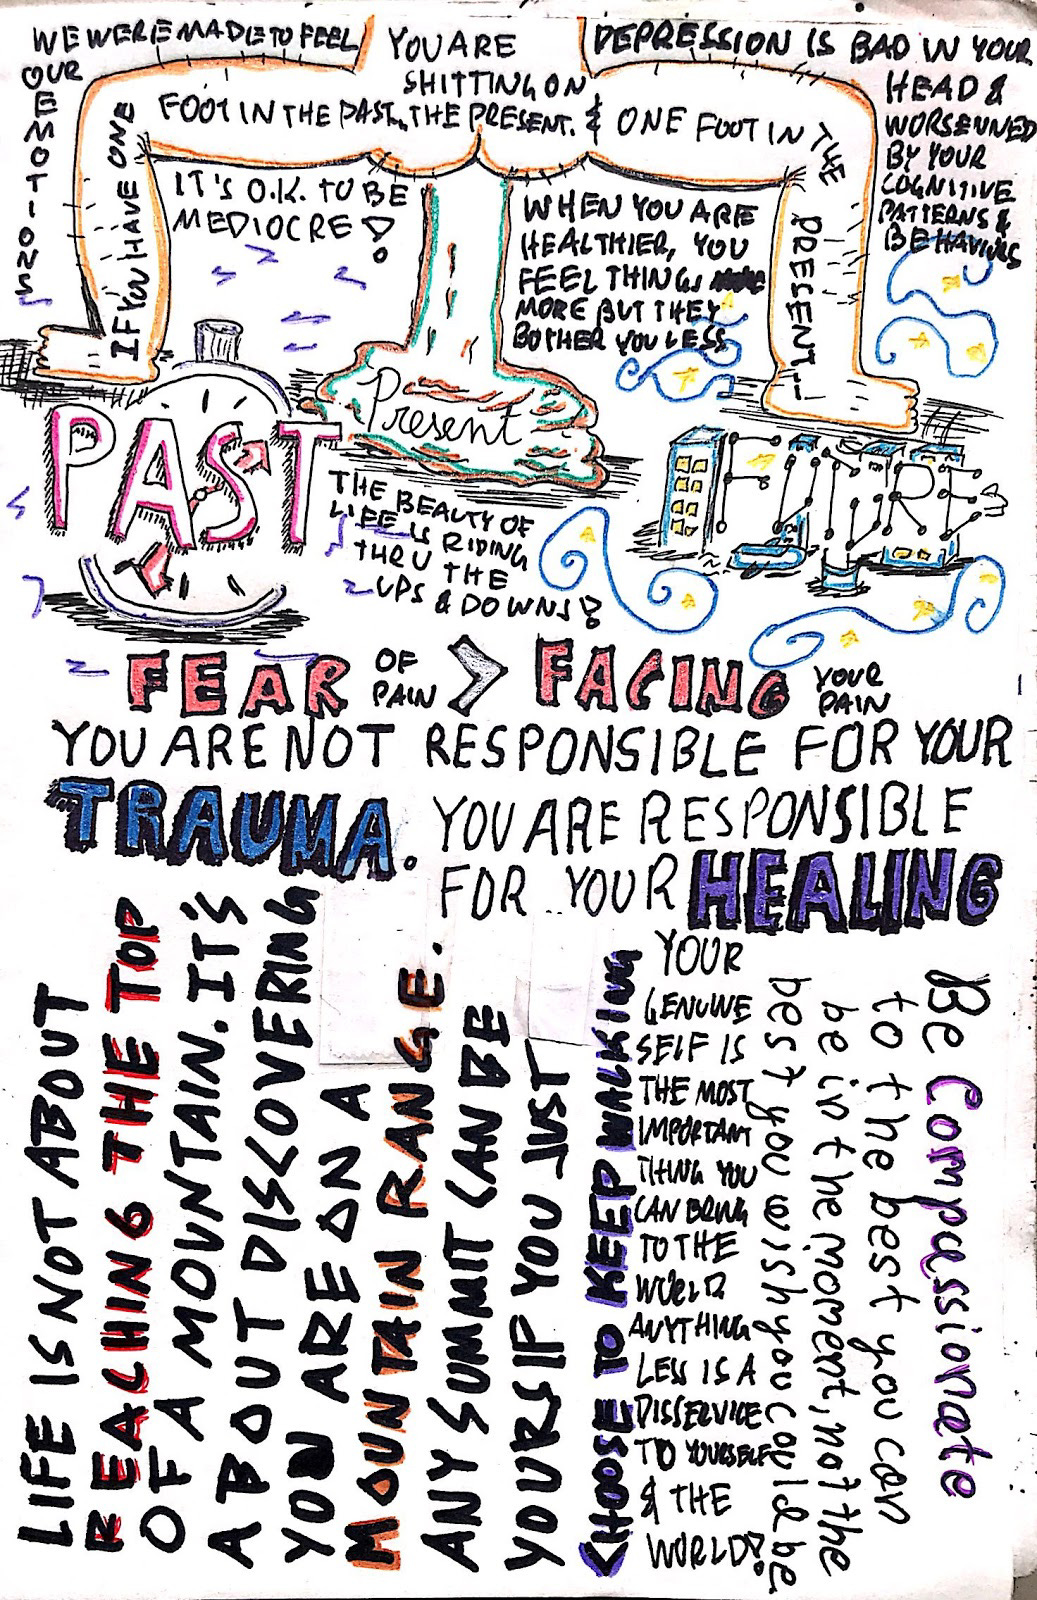 WE WERE MADE TO FEEL
OUR
EMOTIONS
YOU ARE
SHITTING ON
THE PRESENT.
DEPRESSION IS BAD IN YOUR
HEAD &
WORSENNED
BY YOUR
COGNITIVE
PATTERNS &
BEHAVIORS
IF YOU HAVE ONE
FOOT IN THE PAST..
& ONE FOOT IN
THE
PRESENT...
IT'S O.K. TO BE
MEDIOCRE!
WHEN YOU ARE
HEALTHIER, YOU
FEEL THINGS
MORE BUT THEY
BOTHER YOU LESS
PAST
Present
FUTURE
THE BEAUTY OF
LIFE IS RIDING
THRU THE
UPS & DOWNS!
FEAR OF PAIN > FACING YOUR PAIN
YOU ARE NOT RESPONSIBLE FOR YOUR
TRAUMA. YOU ARE RESPONSIBLE
FOR YOUR HEALING
LIFE IS NOT ABOUT
REACHING THE TOP
OF A MOUNTAIN. IT'S
ABOUT DISCOVERING
YOU ARE ON A
MOUNTAIN RANGE.
ANY SUMMIT CAN BE
YOURS IF YOU JUST
CHOOSE TO KEEP WALKING
YOUR
GENUINE
SELF IS
THE MOST
IMPORTANT
THING YOU
CAN BRING
TO THE
WORLD
ANYTHING
LESS IS A
DISSERVICE
TO YOURSELF
& THE
WORLD!
Be Compassionate
to the best you can
be in the moment, not the
best you wish you could be